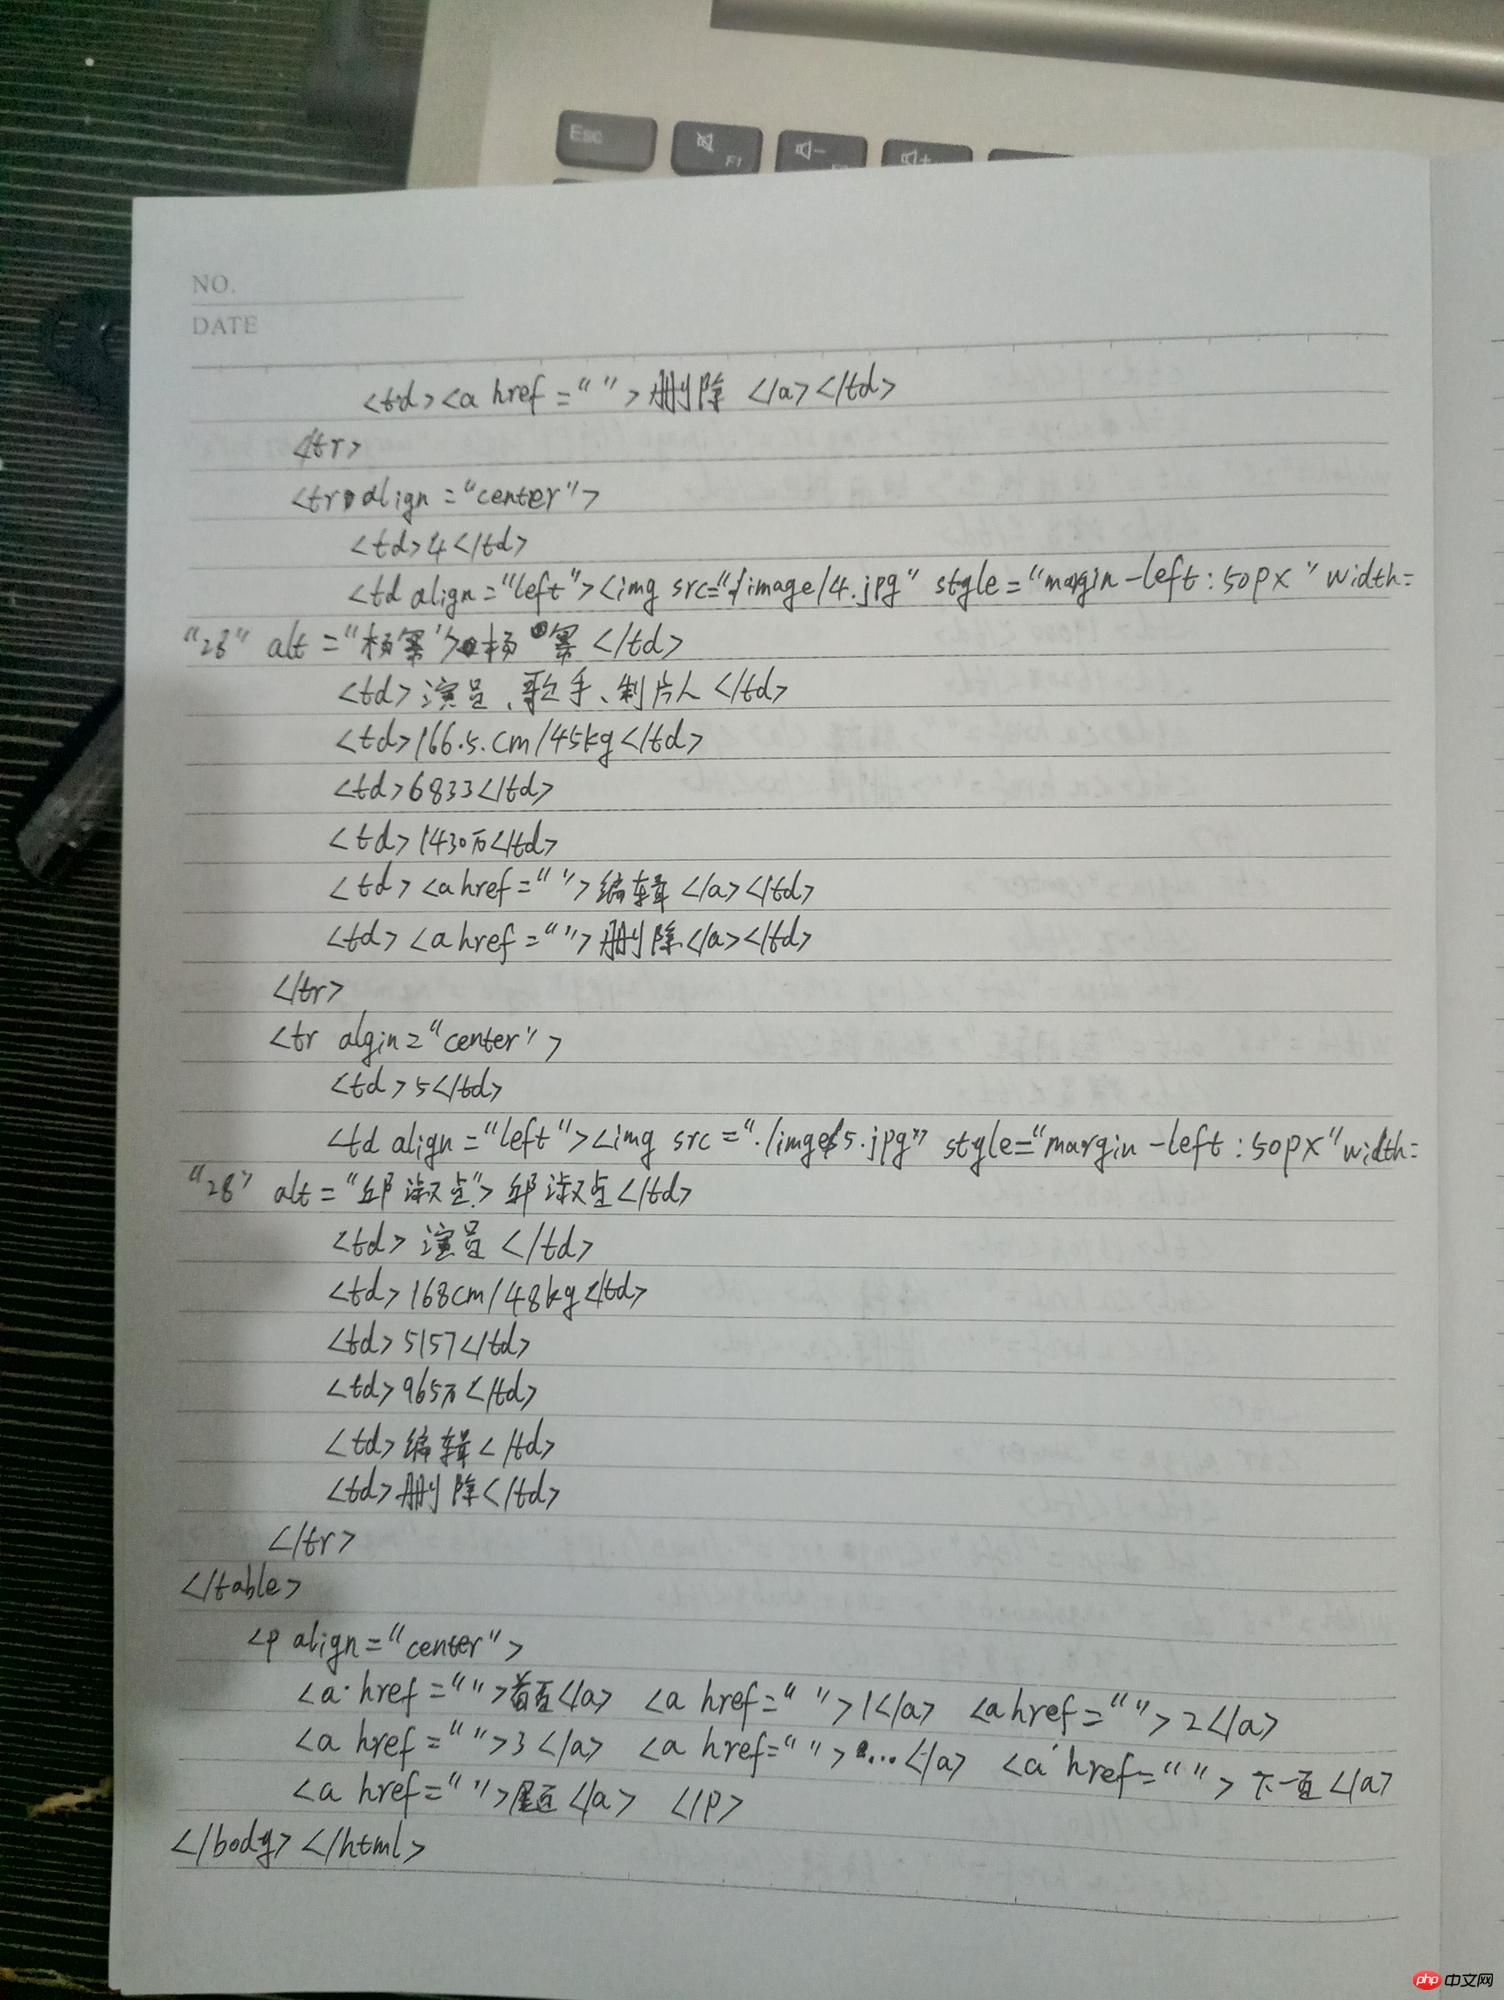 Esc
F1
NO.
DATE
<td><a href="">删除</a></td>
</tr>
<tr align="center">
<td>4</td>
<td align="left"><img src="./image/4.jpg" style="margin-left:50px" width=
"28" alt="杨幂">杨幂</td>
<td>演员、歌手、制片人</td>
<td>166.5.cm/45kg</td>
<td>6833</td>
<td>1430万</td>
<td><a href="">编辑</a></td>
<td><a href="">删除</a></td>
</tr>
<tr algin="center">
<td>5</td>
<td align="left"><img src="./image/5.jpg" style="margin-left:50px" width=
"28" alt="邱淑贞">邱淑贞</td>
<td>演员</td>
<td>168cm/48kg</td>
<td>5157</td>
<td>965万</td>
<td>编辑</td>
<td>删除</td>
</tr>
</table>
<p align="center">
<a href="">首页</a> <a href="">1</a> <a href="">2</a>
<a href="">3</a> <a href="">...</a> <a href="">下一页</a>
<a href="">尾页</a> </p>
</body></html>
php 中文网